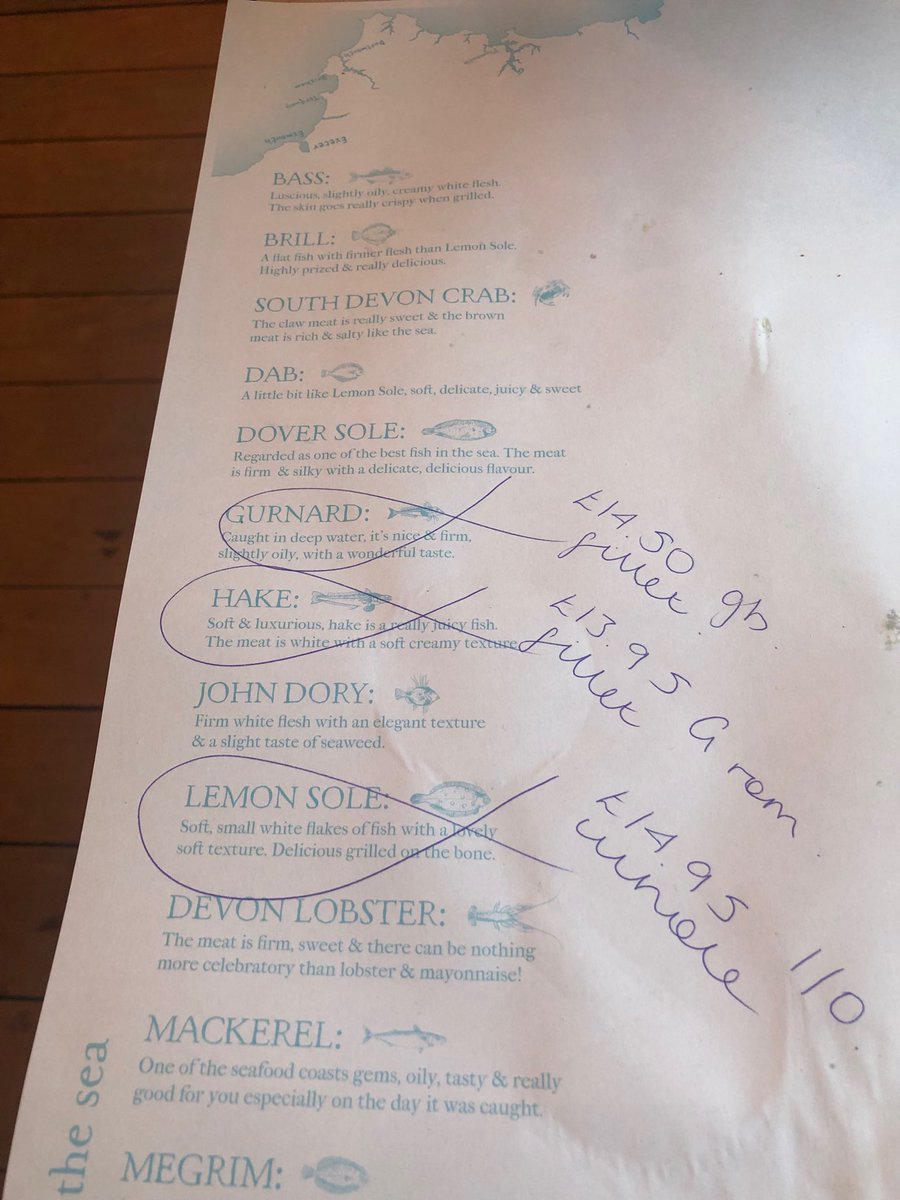 EXETER
BASS:
Luscious, slightly oily, creamy white flesh.
The skin goes really crispy when grilled.
BRILL:
A flat fish with firmer flesh than Lemon Sole.
Highly prized & really delicious.
SOUTH DEVON CRAB:
The claw meat is really sweet & the brown
meat is rich & salty like the sea.
DAB:
A little bit like Lemon Sole, soft, delicate, juicy & sweet
DOVER SOLE:
Regarded as one of the best fish in the sea. The meat
is firm & silky with a delicate, delicious flavour.
GURNARD:
Caught in deep water, it's nice & firm,
slightly oily, with a wonderful taste.
£14.50
fillet gb
HAKE:
Soft & luxurious, hake is a really juicy fish.
The meat is white with a soft creamy texture.
£13 95
fillet G rom
JOHN DORY:
Firm white flesh with an elegant texture
& a slight taste of seaweed.
LEMON SOLE:
Soft, small white flakes of fish with a lovely
soft texture. Delicious grilled on the bone.
£14 95
DEVON LOBSTER:
The meat is firm, sweet & there can be nothing
more celebratory than lobster & mayonnaise!
MACKEREL:
One of the seafood coasts gems, oily, tasty & really
good for you especially on the day it was caught.
MEGRIM:
the sea